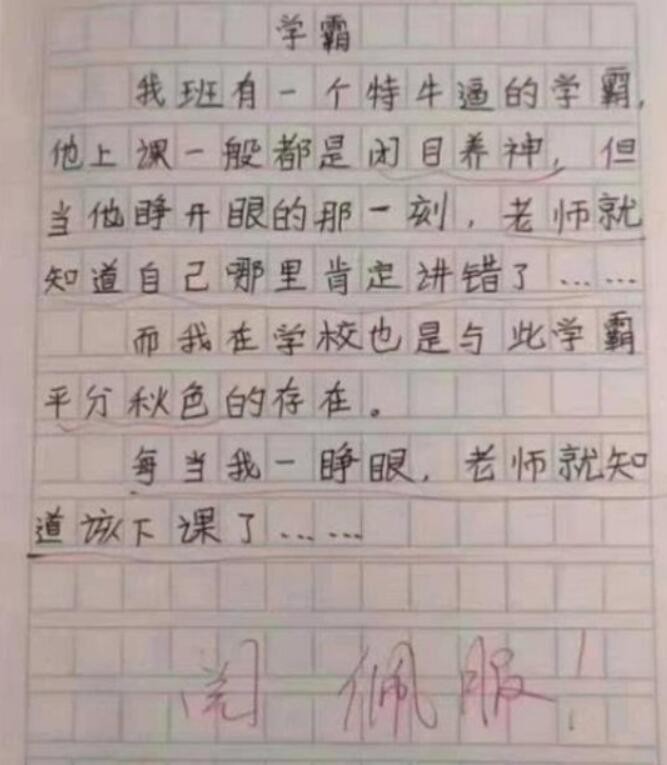 学霸
我班有一个特牛逼的学霸，
他上课一般都是闭目养神，但
当他睁开眼的那一刻，老师就
知道自己哪里肯定讲错了……
而我在学校也是与此学霸
平分秋色的存在。
每当我一睁眼，老师就知
道该下课了……
阅 佩服！